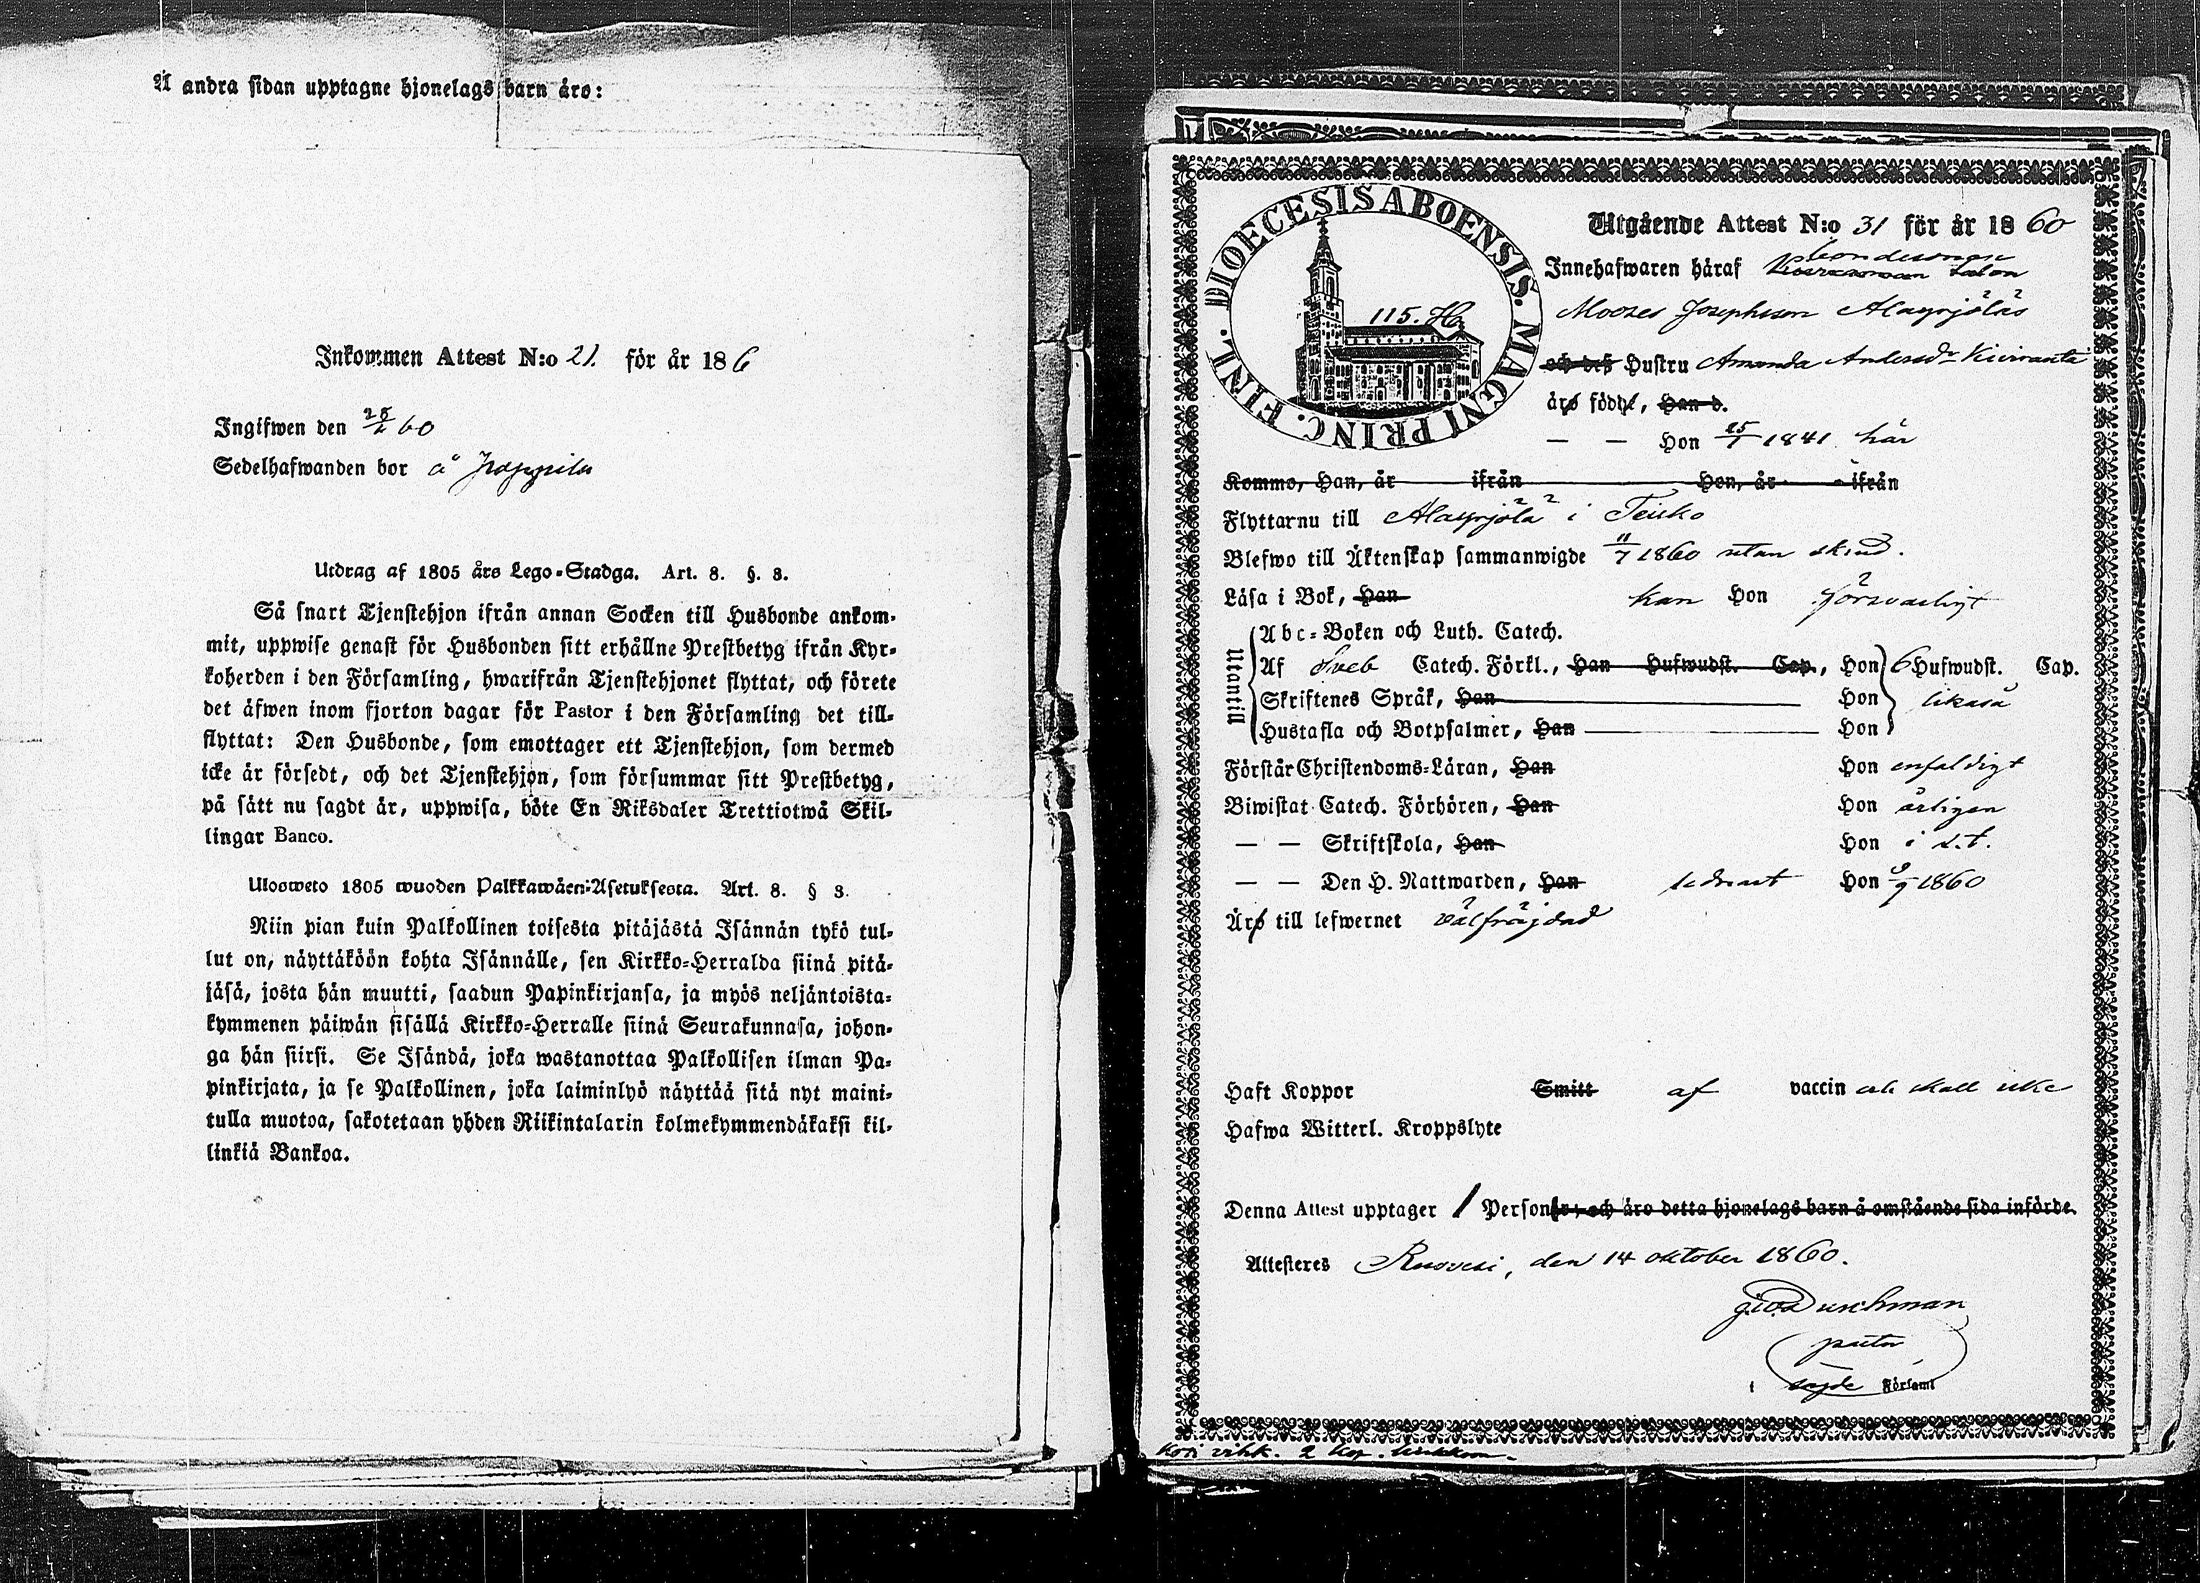 Å andra sidan upptagne hjonelags barn äro:
Inkommen Attest N:o 21. för år 186
Ingifwen den 60
Sedelhafwanden bor å
Utdrag af 1805 års Lego-Stadga. Art. 8. §. 3.
Så snart Tjenstehjon ifrån annan Socken till Husbonde ankom-
mit, uppwise genast för Husbonden sitt erhållne Prestbetyg ifrån Kyr-
koherden i den Församling, hwarifrån Tjenstehjonet flyttat, och förete
det äfwen inom fjorton dagar för Pastor i den Församling det till-
flyttat: Den Husbonde, som emottager ett Tjenstehjon, som dermed
icke är försedt, och det Tjenstehjon, som försummar sitt Prestbetyg,
på sätt nu sagdt är, uppwisa, böte En Riksdaler Trettiotwå Skil-
lingar Banco.
Ulosweto 1805 wuoden Palkkawäen-Asetuksesta. Art. 8. § 3.
Niin pian kuin Palkollinen toisesta pitäjästä Isännän tykö tul-
lut on, näyttäköön kohta Isännälle, sen Kirkko-Herralda siinä pitä-
jäsä, josta hän muutti, saadun Papinkirjansa, ja myös neljäntoista-
kymmenen päiwän sisällä Kirkko-Herralle siinä Seurakunnasa, johon-
ga hän siirsi. Se Isändä, joka wastanottaa Palkollisen ilman Pa-
pinkirjata, ja se Palkollinen, joka laiminlyö näyttää sitä nyt maini-
tulla muotoa, sakotetaan yhden Riikintalarin kolmekymmendäkaksi kil-
linkiä Bankoa.
DIOECESIS ABOENSIS. MAGNI PRINC. FINL.
115.
Utgående Attest N:o 31 för år 1860
Innehafwaren häraf bondesonen
Moozes Josephsson Alayrjöläs
och dess Hustru Amanda Andersdr Kiviranta
äro född, Han d.
— — Hon 1841 här
Kommo, Han, år ifrån Hon, år ifrån
Flyttarnu till Alayrjölä i Teisko
Blefwo till Äktenskap sammanwigde 11/7 1860 utan
Läsa i Bok, Han kan Hon försvarligt
Utantill
Abc-Boken och Luth. Catech.
Af Sveb Catech. Förkl., Han Hufwudst. Cap., Hon 6 Hufwudst. Cap.
Skriftenes Språk, Han Hon likaså
Hustafla och Botpsalmer, Han Hon
Förstår Christendoms-Läran, Han Hon enfaldigt
Biwistat Catech. Förhören, Han Hon årligen
— — Skriftskola, Han Hon i s.t.
— — Den H. Nattwarden, Han sednast Hon 1860
Äro till lefwernet välfräjdad
Haft Koppor Smitt af vaccin
Hafwa Witterl. Kroppslyte
Denna Attest upptager 1 Personer, och äro detta hjonelags barn å omstående sida införde.
Attesteras Ruovesi, den 14 oktober 1860.
pastor
i Församl